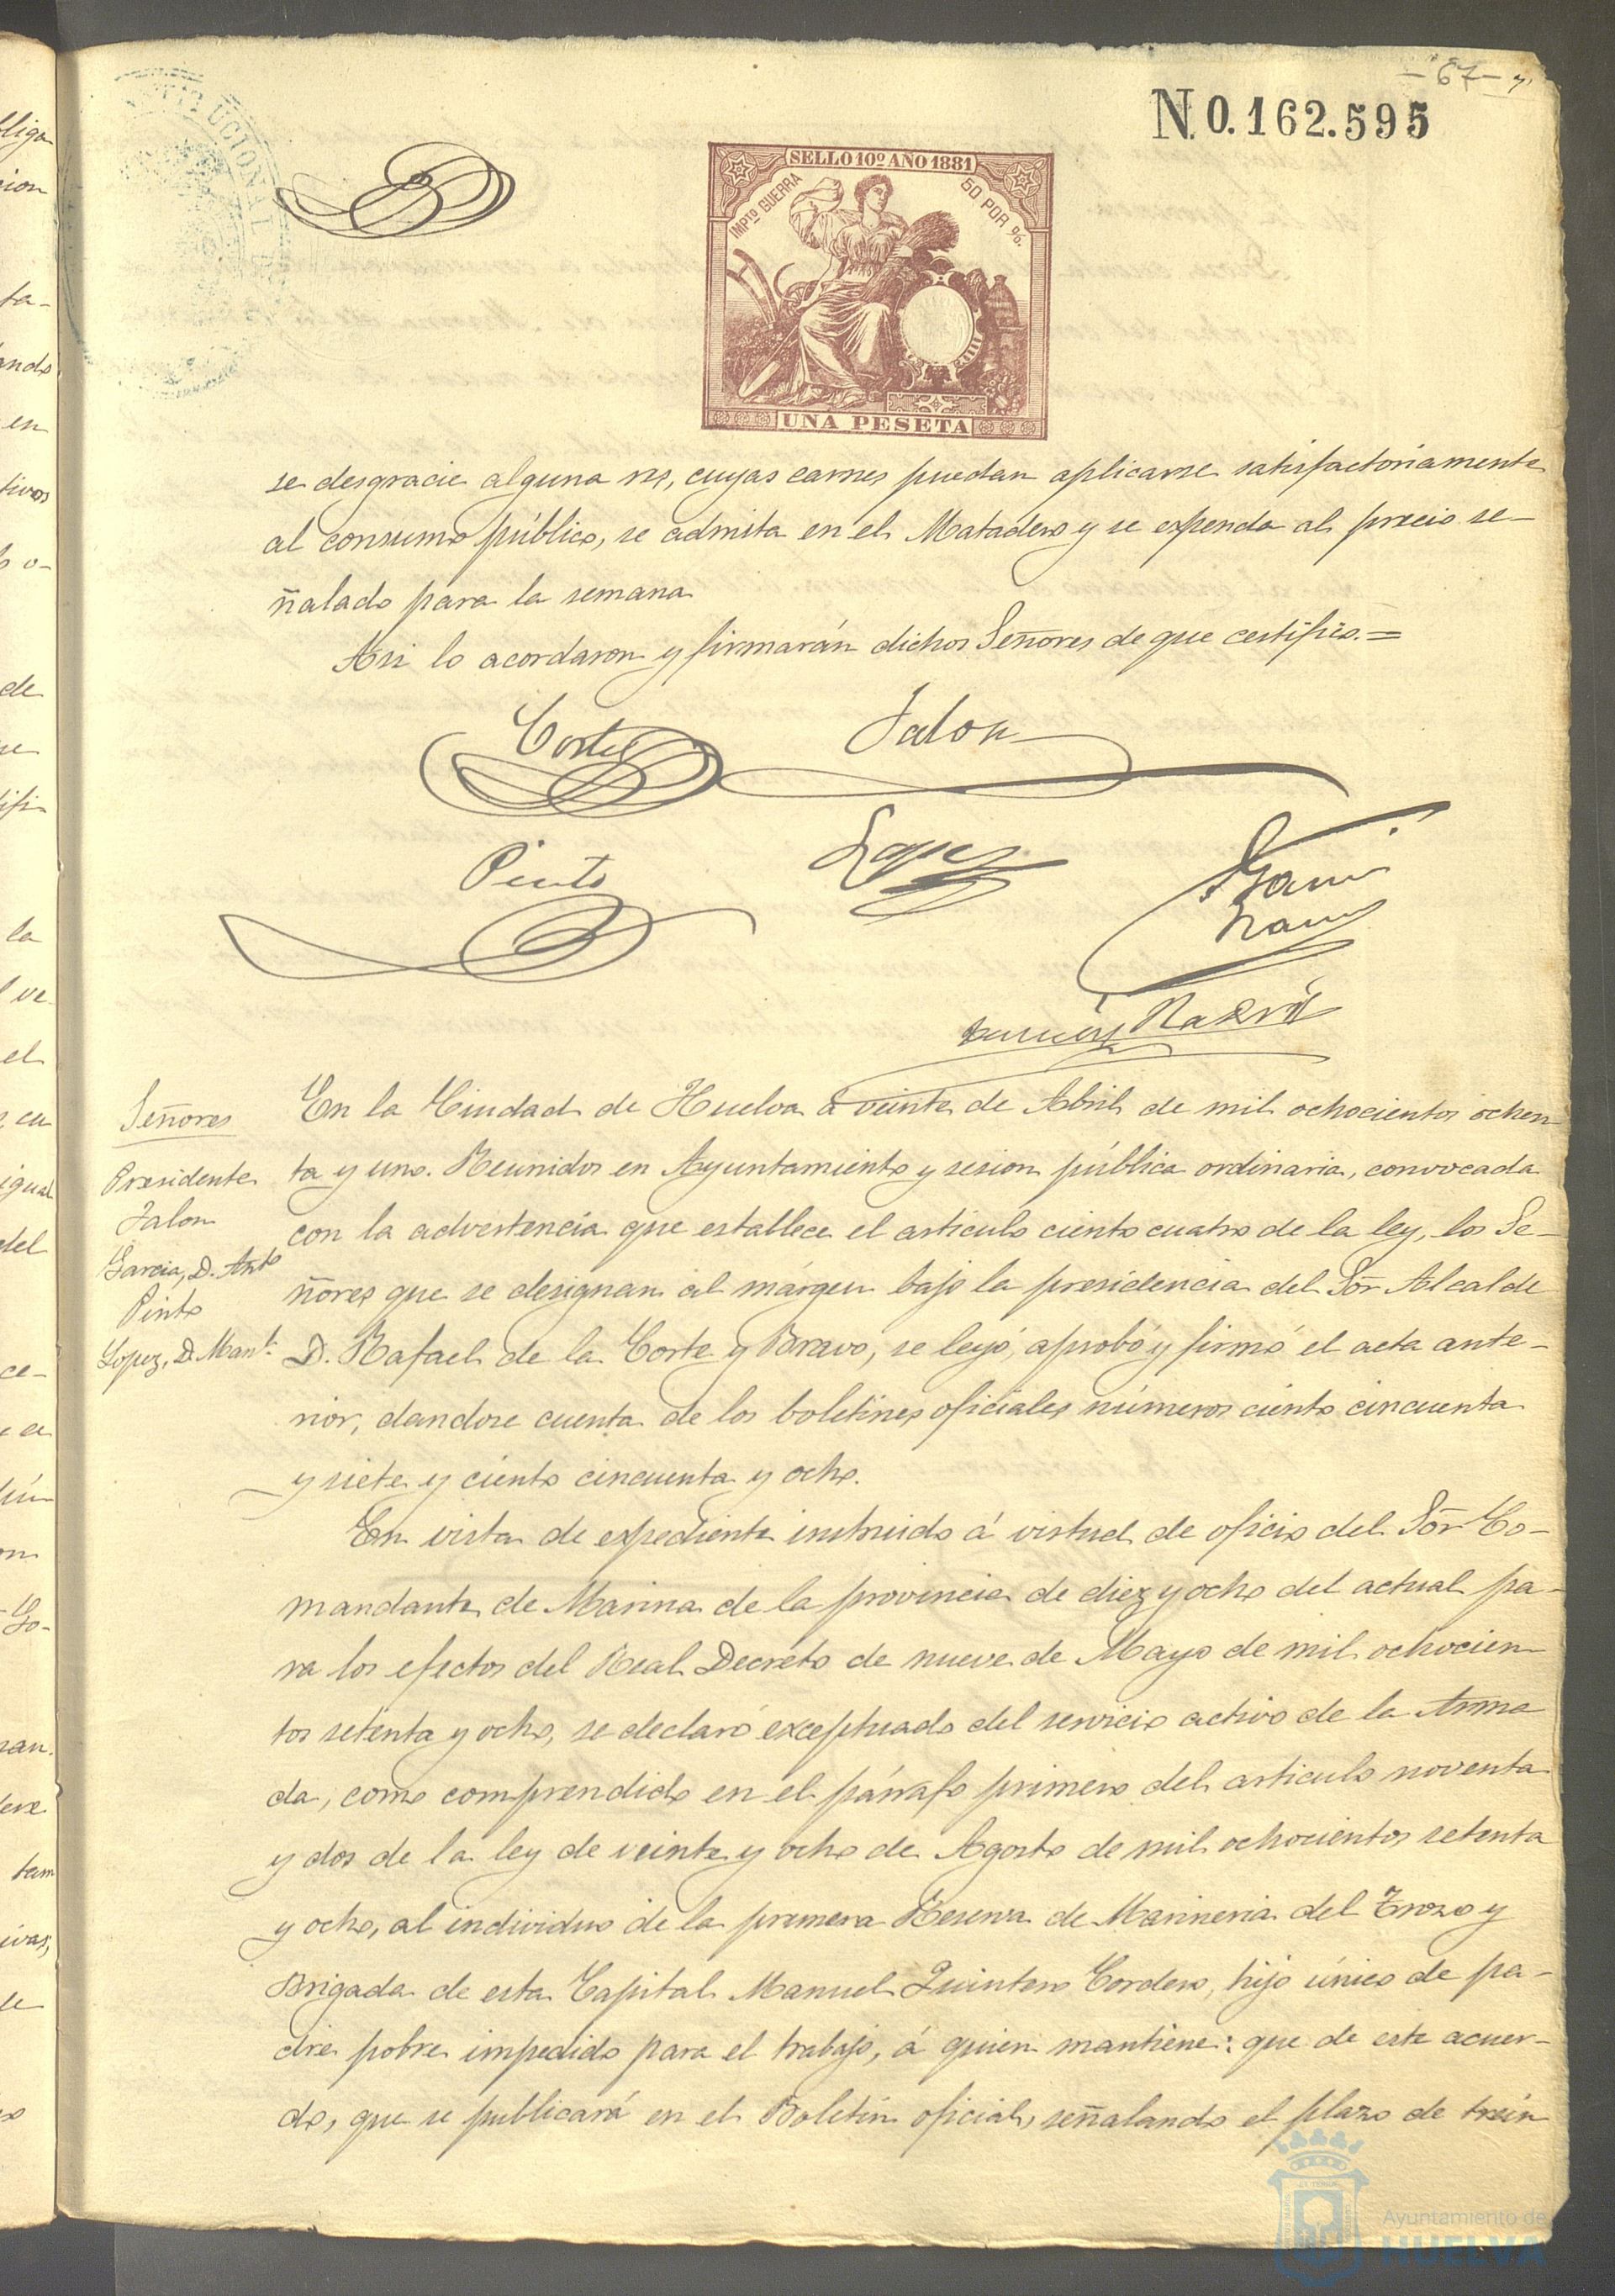 - 67 -
N.0.162.595
SELLO 10º AÑO 1881
IMPTO GUERRA
50 POR %.
UNA PESETA
se desgracie alguna res, cuyas carnes puedan aplicarse satisfactoriamente
al consumo público, se admita en el Matadero y se expenda al precio se-
ñalado para la semana
Asi lo acordaron y firmarán dichos Señores de que certifico. =
Corte
Jalon
Pinto
Lopez
Garcia
En la Ciudad de Huelva a veinte de Abril de mil ochocientos ochen
ta y uno. Reunidos en Ayuntamiento y sesion pública ordinaria, convocada
con la advertencia que establece el articulo ciento cuatro de la ley, los Se-
ñores que se designan al márgen bajo la presidencia del Sor Alcalde
D. Rafael de la Corte y Bravo, se leyó, aprobó y firmó el acta ante-
rior, dandose cuenta de los boletines oficiales números ciento cincuenta
y siete y ciento cincuenta y ocho.
Señores
Presidente
Jalon
Garcia, D. Anto
Pinto
Lopez, D. Manl.
En vista de expediente instruido á virtud de oficio del Sor Co-
mandante de Marina de la provincia de diez y ocho del actual pa-
ra los efectos del Real Decreto de nueve de Mayo de mil ochocien
tos setenta y ocho, se declaró exceptuado del servicio activo de la Arma
da, como comprendido en el párrafo primero del articulo noventa
y dos de la ley de veinte y ocho de Agosto de mil ochocientos setenta
y ocho, al individuo de la primera Reserva de Marineria del Trozo y
Brigada de esta Capital Manuel Quintero Cordero, hijo único de pa-
dre pobre impedido para el trabajo, á quien mantiene: que de este acuer-
do, que se publicará en el Boletin oficial, señalando el plazo de trein
Ayuntamiento de
HUELVA